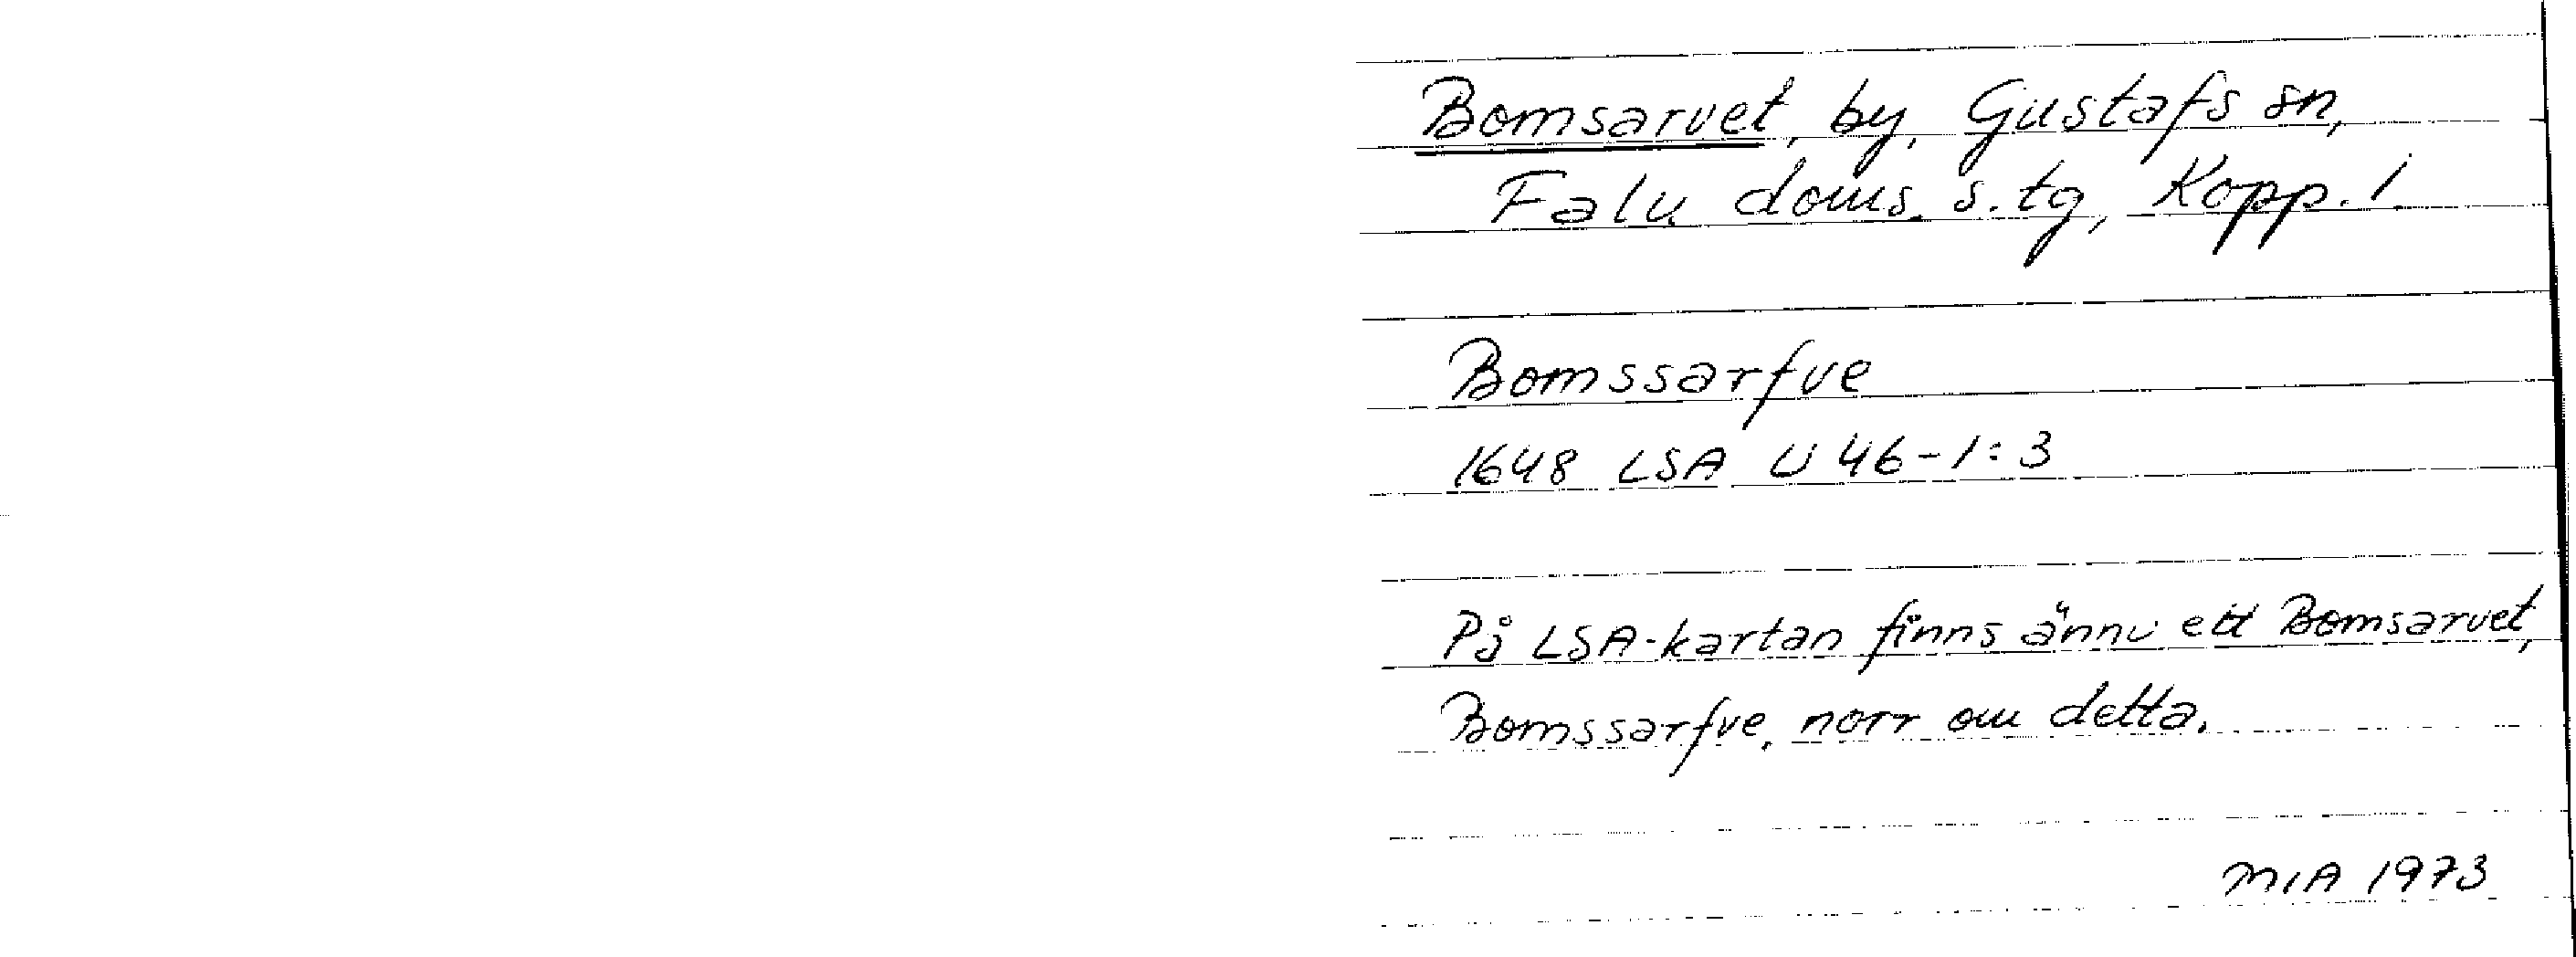 Bomsarvet, by, Gustafs sn,
Falu doms. s. tg, Kopp. l.
Bomssarfve
1648 LSA U 46-1:3
På LSA-kartan finns ännu ett Bomsarvet,
Bomssarfve, norr om detta.
MIA 1973